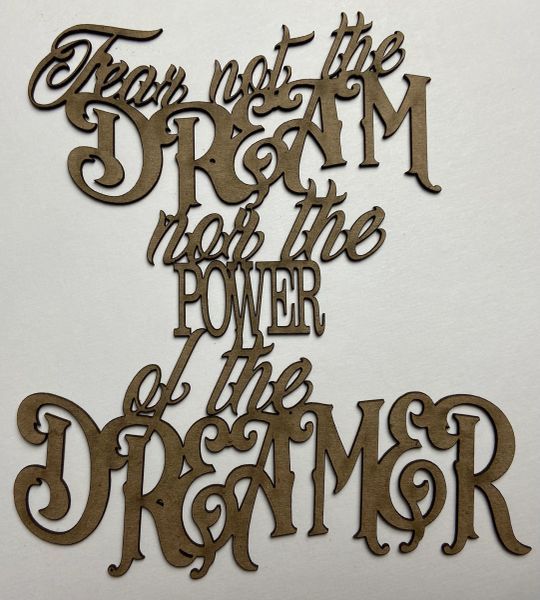 Fear not the
DREAM
nor the
POWER
of the
DREAMER